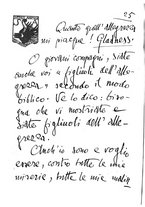 25
Quanto quell'allegrezza
mi piacque! Gladness.
O giovani compagni, siate
anche voi "figliuoli dell'alle-
grezza" secondo il motto
biblico. Ve lo dico: biso-
gna che vi mostriate e
siate figliuoli dell'alle-
grezza.
Anch'io sono e voglio
essere, contro tutte le mie
miserie, tutte le mie